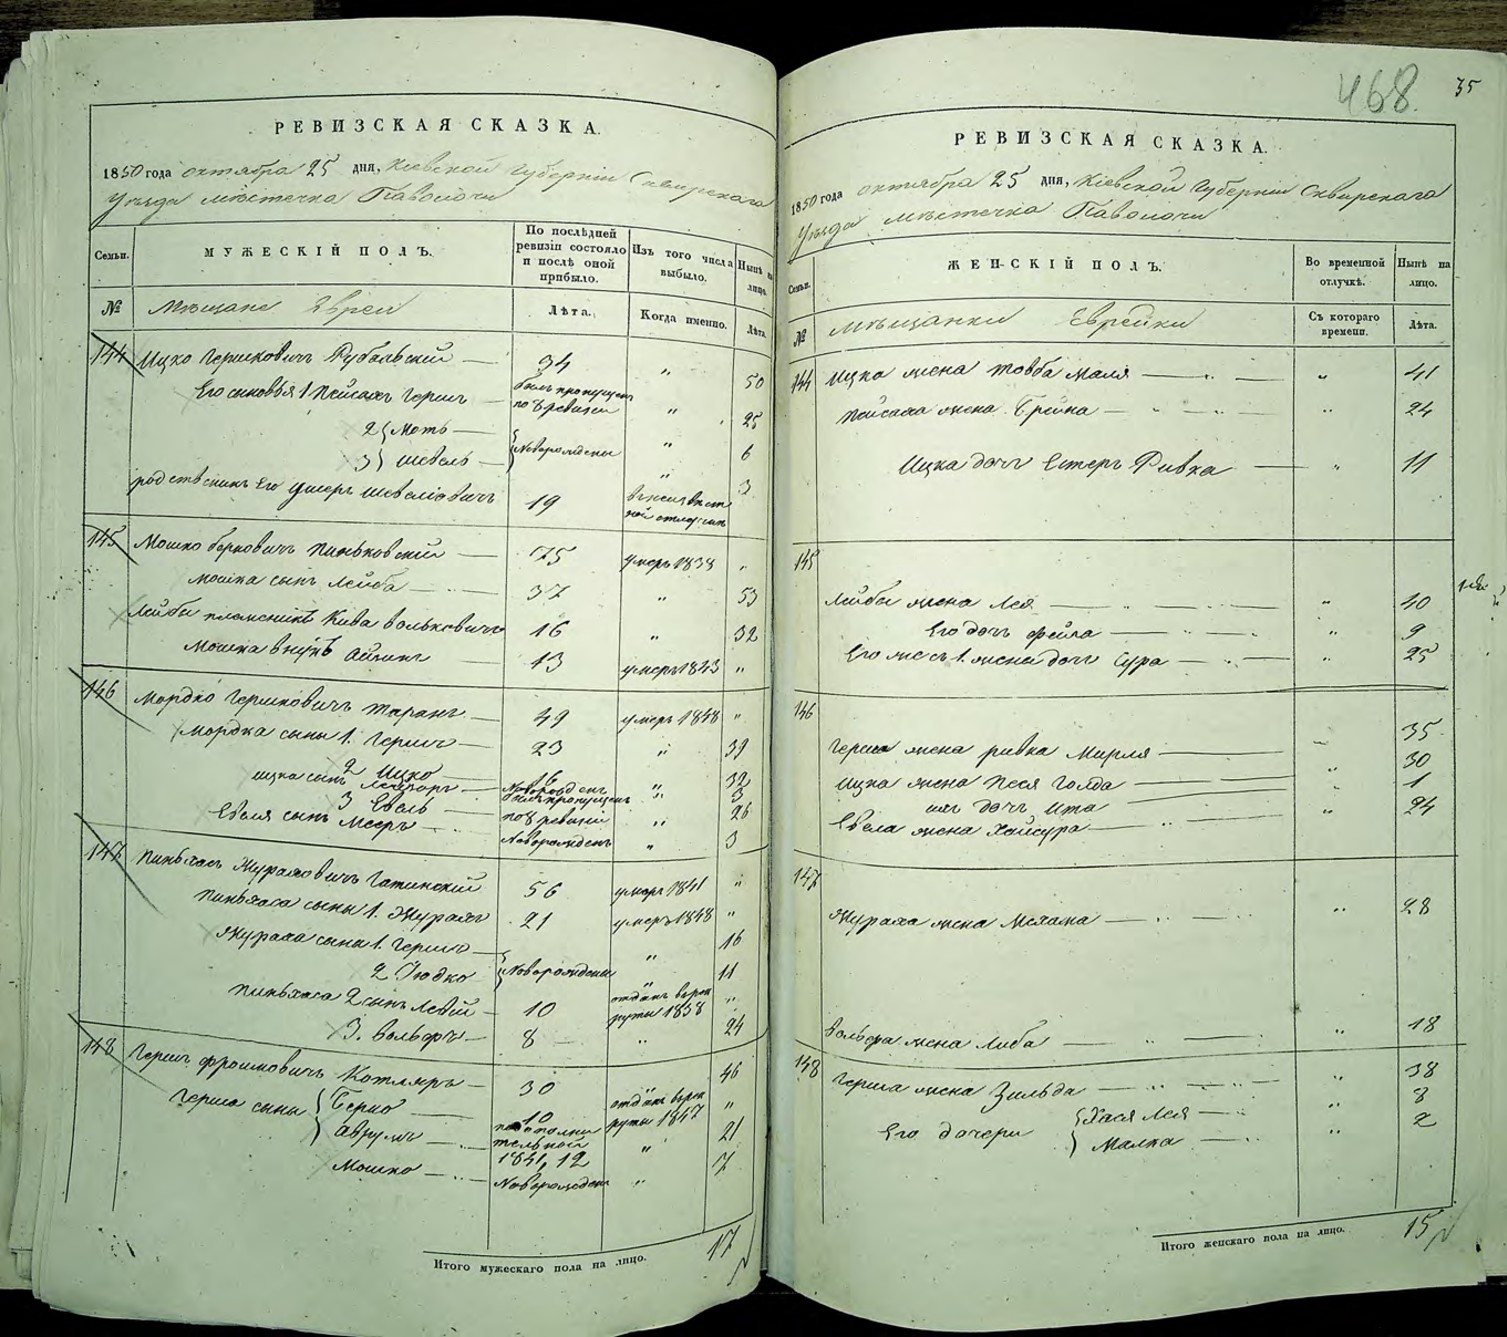 РЕВИЗСКАЯ СКАЗКА.
1850 года октября 25 дня, Кіевской Губерніи Сквирскаго
Уѣзда мѣстечка Паволочи
Семьи.
МУЖЕСКІЙ ПОЛЪ.
По послѣдней ревизіи состояло и послѣ оной прибыло.
Изъ того числа выбыло.
Нынѣ на лицо.
№ Мѣщане Евреи
Лѣта. Когда именно. Лѣта.
144 Ицко Гершковичъ Рубальскій — 34 " 50
Его сыновья 1 Пейсахъ Гершъ — былъ пропущенъ по 8 ревизіи " 25
2 Мотъ — Новорожденны " 6
3 Шевель — " 3
родственикъ Его Умеръ Шевелiовичъ 19
145 Мошко Берковичъ Паньковскій — 75 умеръ 1838 "
Мошка сынъ Лейба — 37 " 53
Лейбы племеникъ Кива Вольковичъ 16 " 32
Мошка внукъ Айзикъ — 13 умеръ 1843 "
146 Мордко Гершковичъ Таранъ — 49 умеръ 1848 "
Мордка сыны 1. Гершъ — 23 " 39
2 Ицко — 16 " 32
Ицка сынъ Лейзоръ — Новорожденъ " 3
3 Евель — былъ пропущенъ по 8 ревизіи " 26
Евеля сынъ Мееръ — Новорожденъ " 3
147 Пиньхасъ Жураховичъ Гатинскій 56 умеръ 1841 "
Пиньхаса сыны 1. Журахъ 21 умеръ 1848 "
Жураха сыны 1. Гершъ — Новорожденны " 16
2 Іюдко 11
Пиньхаса 2 сынъ Левій — 10 отданъ въ рекруты 1838 "
3. Вольфъ — 8 — " 24
148 Гершъ Фроимовичъ Котляръ — 30 46
Герша сыны Берко — 10 отданъ въ рекруты 1847 "
Аврумъ — по дополнительной 1841, 12 " 21
Мошко — Новорожденъ " 7
Итого мужескаго пола на лицо. 17
468 35
РЕВИЗСКАЯ СКАЗКА.
1850 года октября 25 дня, Кіевской Губерніи Сквирскаго
Уѣзда мѣстечка Паволочи
Семьи.
ЖЕНСКІЙ ПОЛЪ.
Во временной отлучкѣ.
Нынѣ на лицо.
№ Мѣщанки Еврейки
Съ котораго времени. Лѣта.
144 Ицка жена Товба Маля — " 41
Пейсаха жена Брейна — " 24
Ицка дочь Естеръ Ривка — " 11
145
Лейбы жена Лея — " 40
Его дочь Фейга — " 9
Его же съ 1. жены дочь Сура — " 25
146
Герша жена Ривка Мирля — 35
Ицка жена Песя Голда — " 30
ихъ дочь Ита " 1
Евеля жена Хайсура — " 24
147
Жураха жена Мехама — " 28
Вольфа жена Либа — " 18
148 Герша жена Зильда — " 38
Его дочери Хася Лея — " 8
Малка — " 2
Итого женскаго пола на лицо. 15